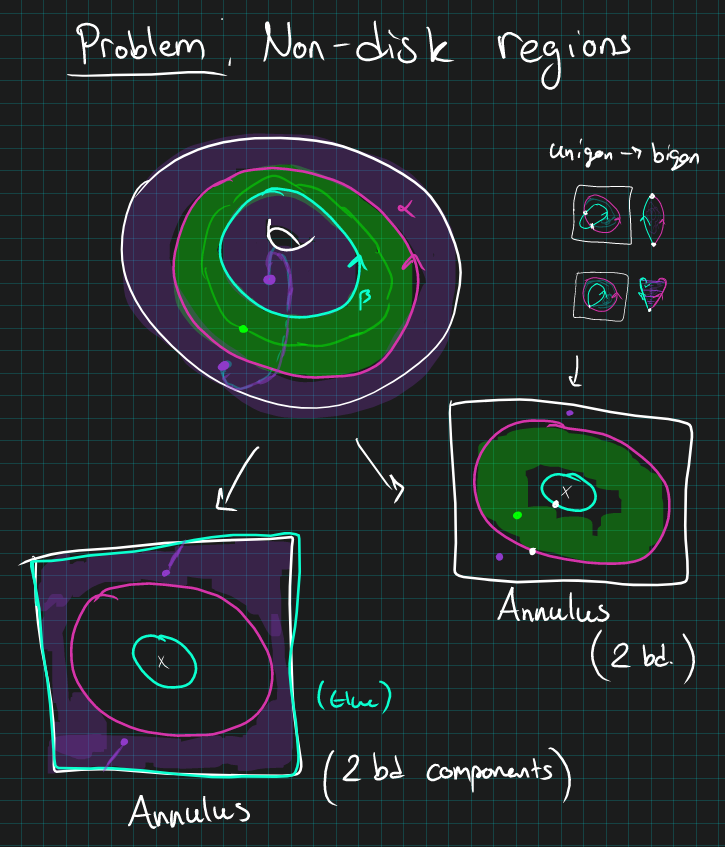 Problem: Non-disk regions
unigon → bigon
α
β
x
Annulus
(2 bd.)
x
(Glue)
(2 bd components)
Annulus